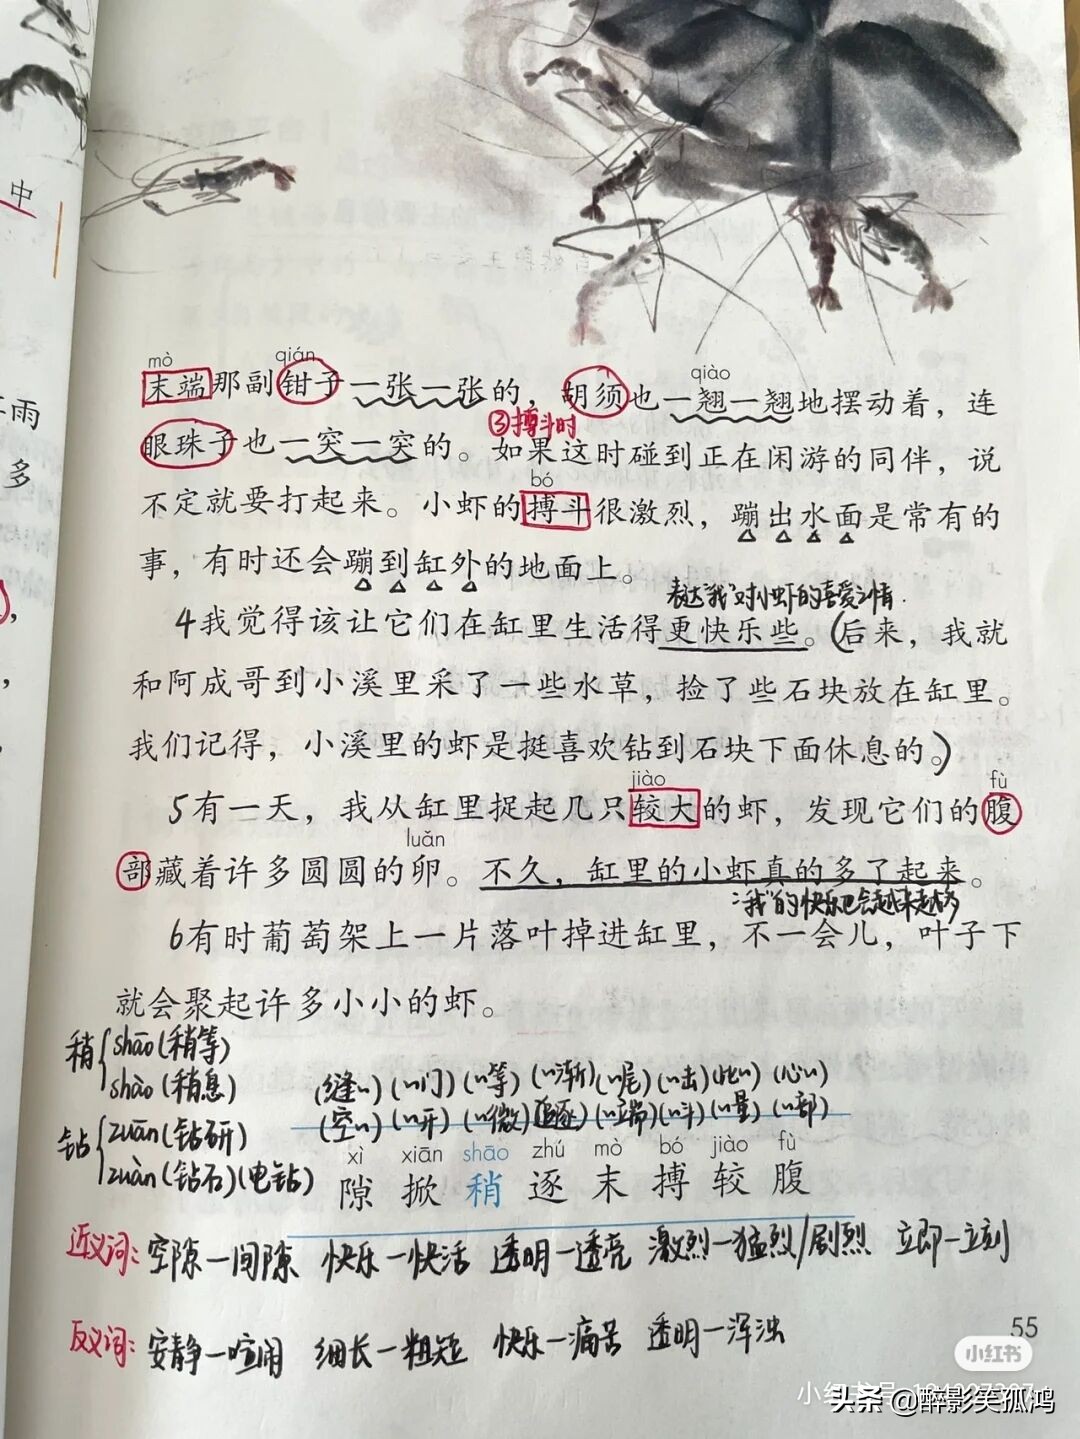 中
雨
多
mò qián qiào
末端那副钳子一张一张的，胡须也一翘一翘地摆动着，连
③搏斗时
眼珠子也一突一突的。如果这时碰到正在闲游的同伴，说
bó
不定就要打起来。小虾的搏斗很激烈，蹦出水面是常有的
事，有时还会蹦到缸外的地面上。
表达"我"对小虾的喜爱之情.
4我觉得该让它们在缸里生活得更快乐些。(后来，我就
和阿成哥到小溪里采了一些水草，捡了些石块放在缸里。
我们记得，小溪里的虾是挺喜欢钻到石块下面休息的。)
jiào fù
5有一天，我从缸里捉起几只较大的虾，发现它们的腹
luǎn
部藏着许多圆圆的卵。不久，缸里的小虾真的多了起来。
"我"的快乐也会越来越多
6有时葡萄架上一片落叶掉进缸里，不一会儿，叶子下
就会聚起许多小小的虾。
稍 shāo(稍等)
shào(稍息)
钻 zuān(钻研)
zuàn(钻石)(电钻)
(缝〃)(〃门)(〃等)(〃渐)(〃尾)(〃击)(比〃)(心〃)
(空〃)(〃开)(〃微)(追逐)(〃端)(〃斗)(〃量)(〃部)
xì xiān shāo zhú mò bó jiào fù
隙 掀 稍 逐 末 搏 较 腹
近义词: 空隙—间隙 快乐—快活 透明—透亮 激烈—猛烈/剧烈 立即—立刻
反义词: 安静—喧闹 细长—粗短 快乐—痛苦 透明—浑浊
55
小红书
小红书号
头条 @醉影笑孤鸿